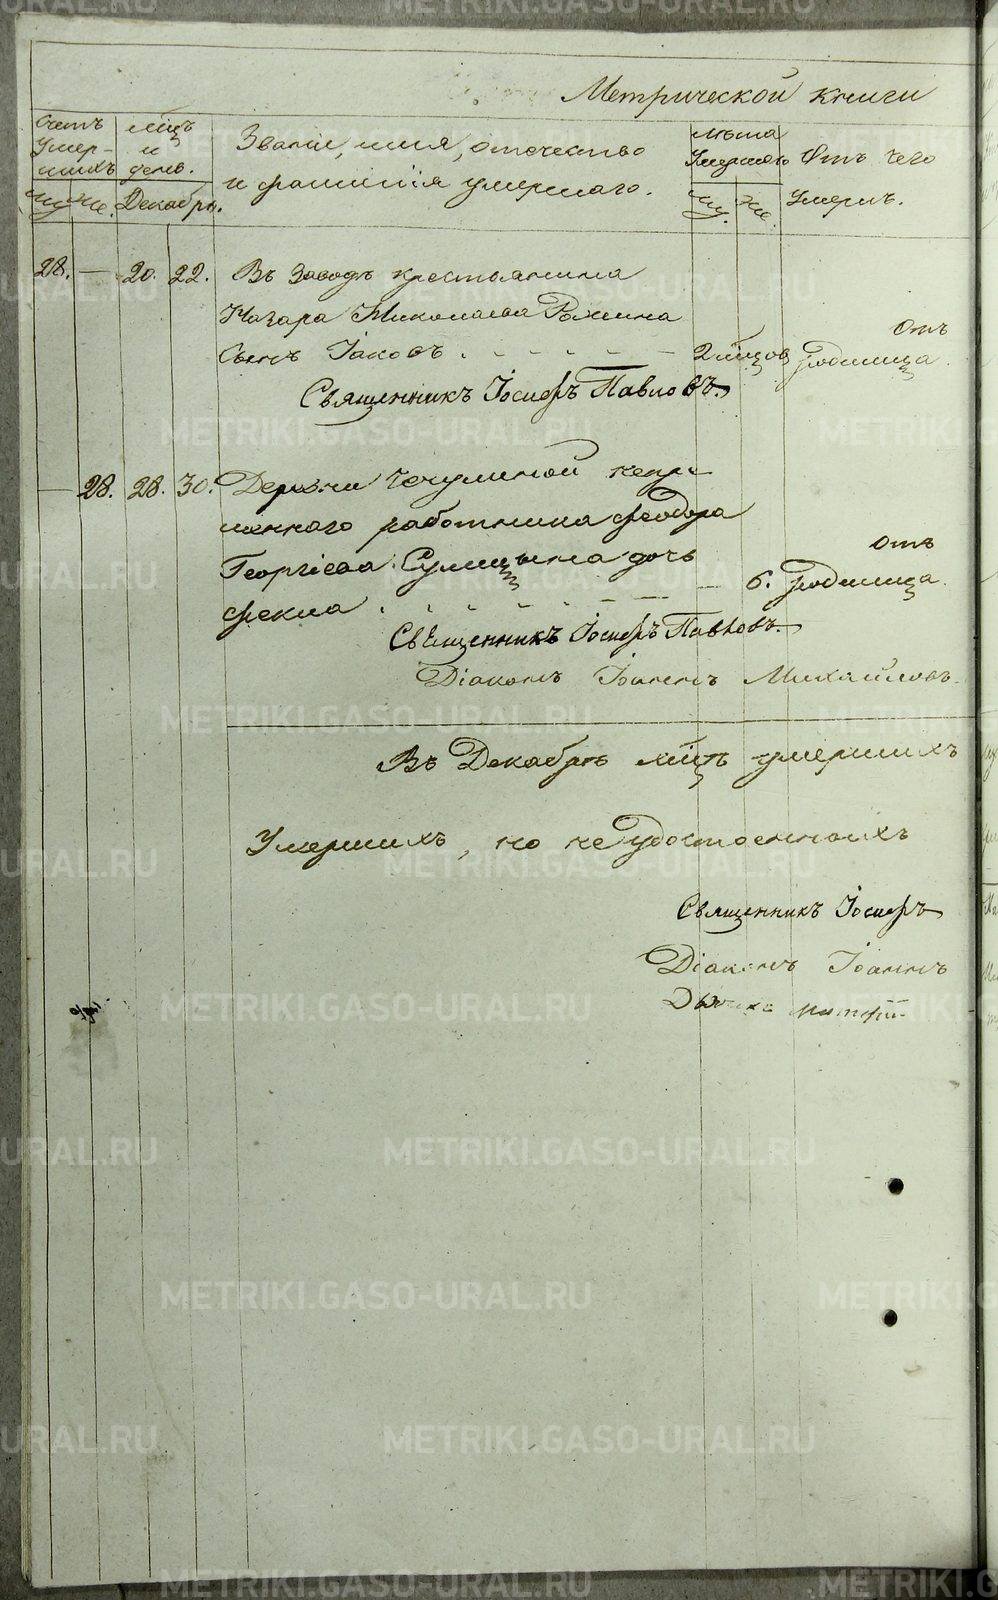 Метрической книги
Счетъ Умер- шихъ
Муж. Же.
мѣцъ и день.
Декабрь.
Званіе, имя, отечество
и фамилія умершаго.
лѣта Умершаго
Муж. Же.
Отъ чего
Умеръ.
28. — 20. 22. Въ Заводѣ крестьянина
Назара Николаева
Сынъ Іаковъ . - - - - - 2 мѣцов
Отъ
родимца.
Священникъ Іосифъ Павловъ.
— 28. 28. 30. Деревни непре-
меннаго работника Феодора
Георгіева дочь
Фекла . - - - - - 6.
Отъ
родимца.
Священникъ Іосифъ Павловъ.
Діаконъ Іоаннъ Михайловъ.
Въ Декабрѣ мѣцѣ умершихъ
Умершихъ, но не удостоенныхъ
Священникъ Іосифъ
Діаконъ Іоаннъ
METRIKI.GASO-URAL.RU